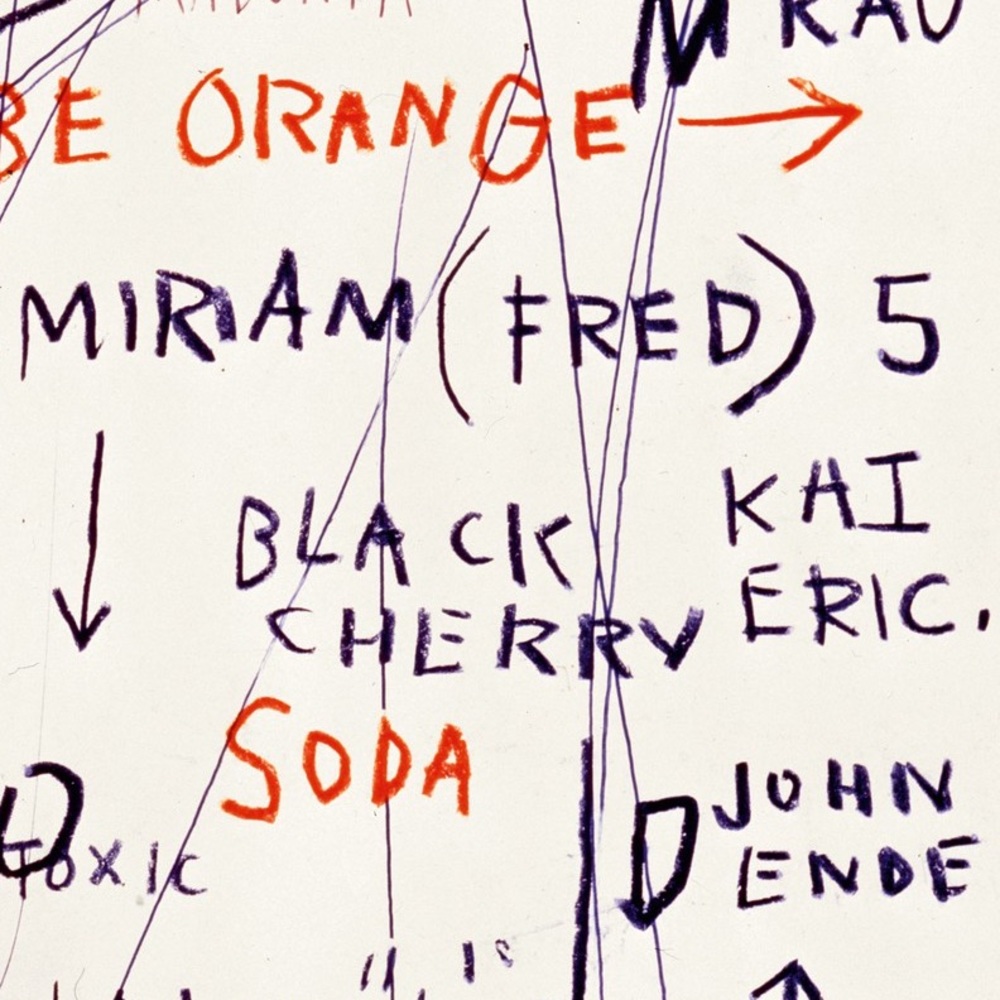 BE ORANGE →
MIRIAM (FRED) 5
KAI
BLACK
ERIC.
CHERRY
SODA
JOHN
TOXIC
ENDE